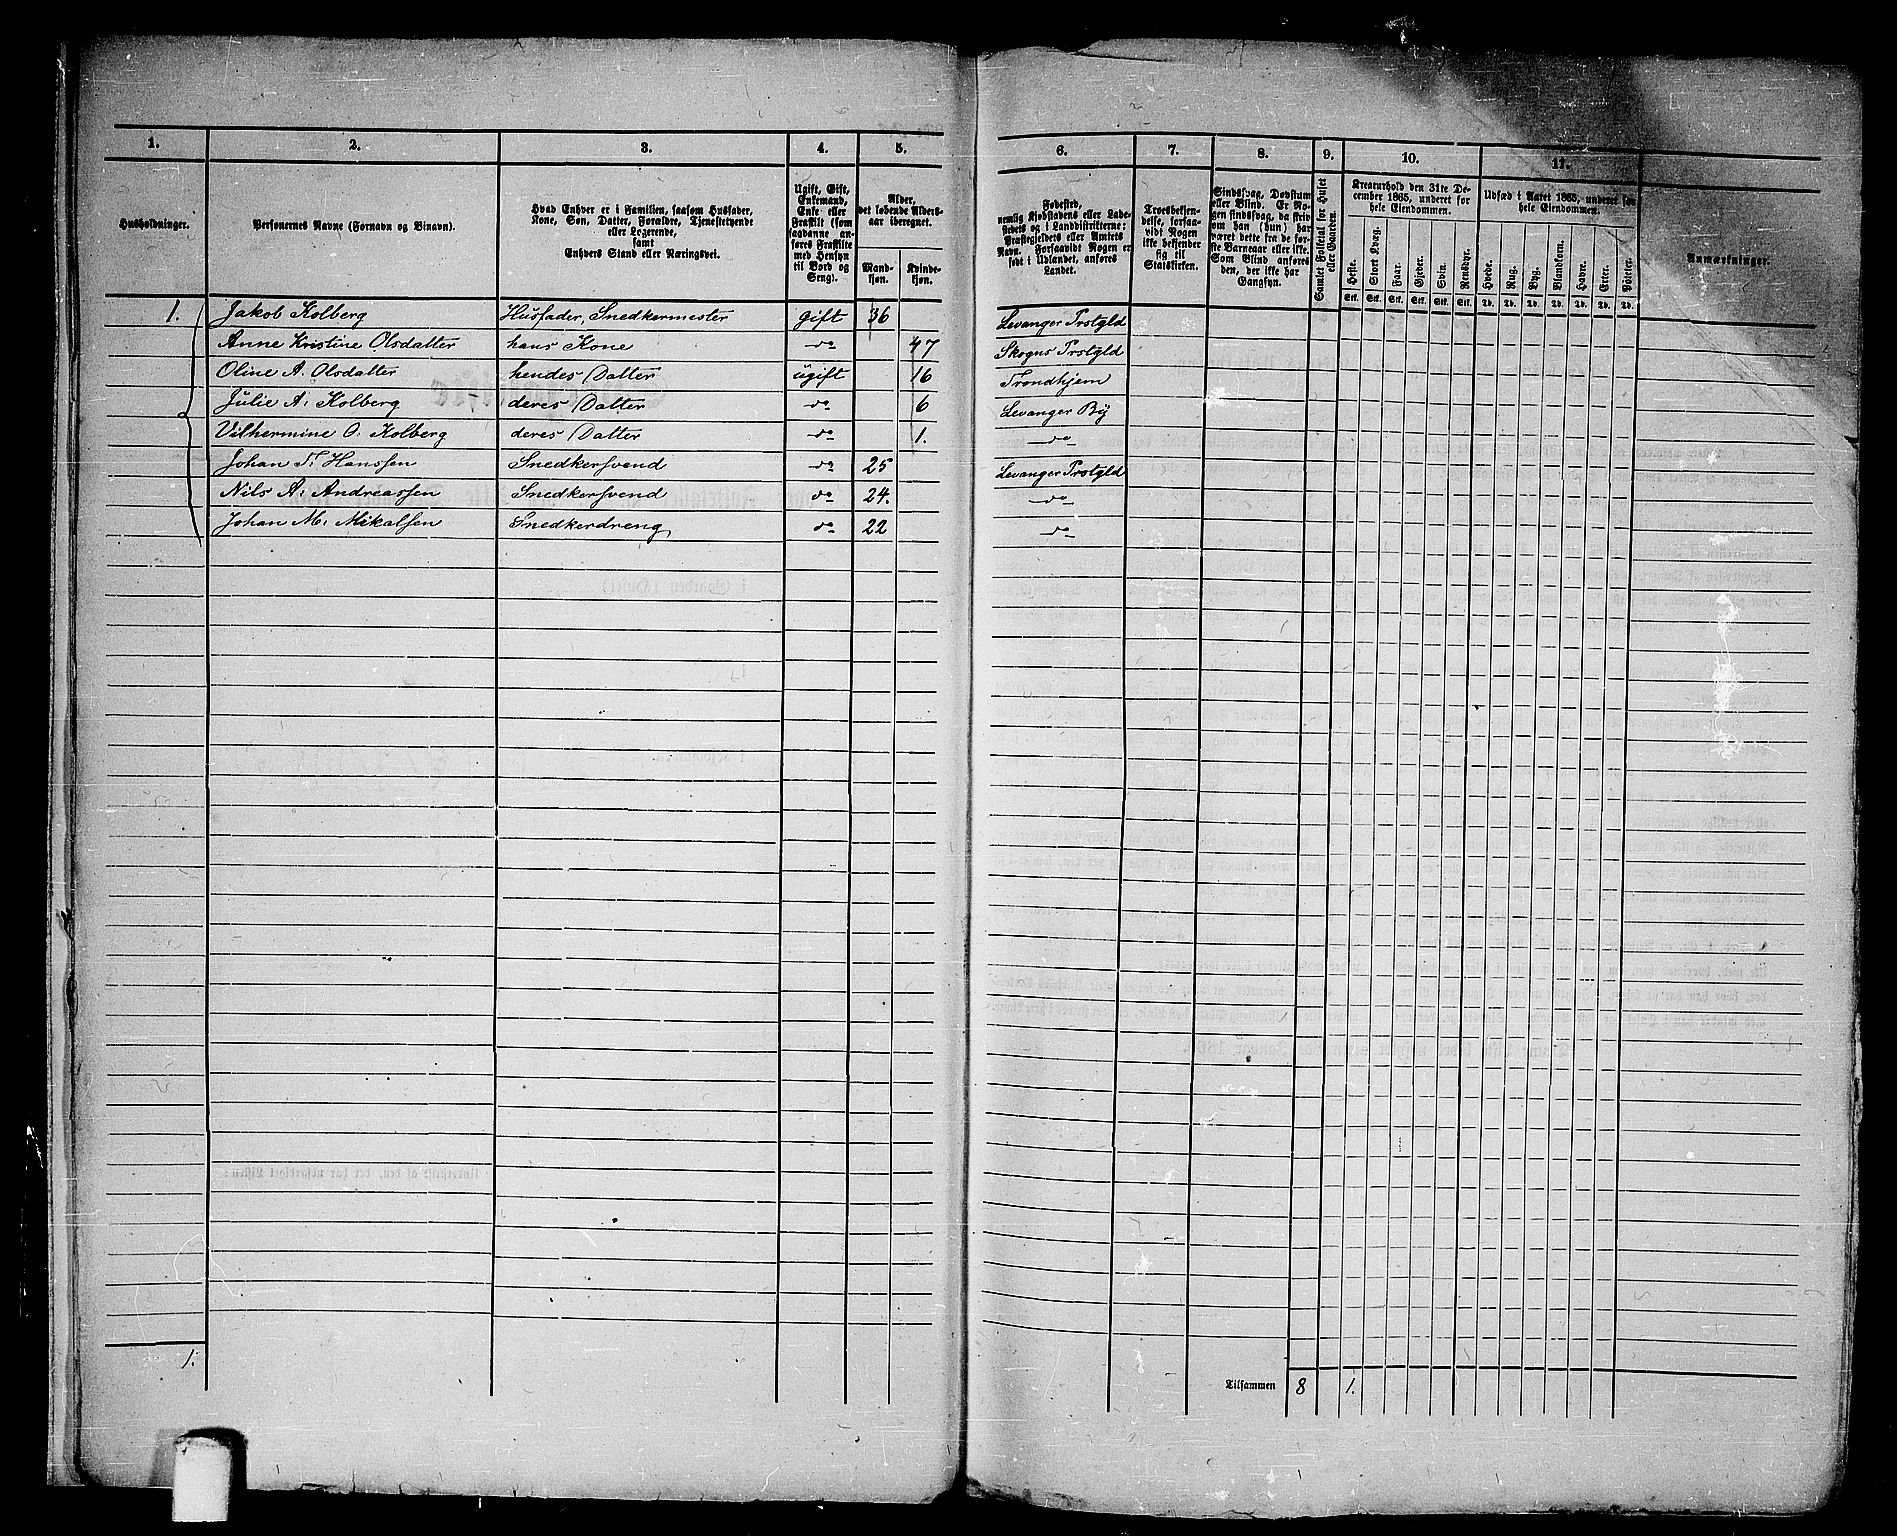 1. 2. 3. 4. 5. 6. 7. 8. 9. 10. 11.
Husholdninger.
Personernes Navne (Fornavn og Binavn).
Hvad Enhver er i Familien, saasom Husfader,
Kone, Søn, Datter, Forældre, Tjenestetyende
eller Logerende,
samt
Enhvers Stand eller Næringsvei.
Ugift, Gift,
Enkemand,
Enke eller
Fraskilt (som
saadanne an-
føres Fraskilte
med Hensyn
til Bord og
Seng).
Alder,
det løbende Alders-
aar iberegnet.
Mand-
kjøn.
Kvinde-
kjøn.
Fødested,
nemlig Kjøbstadens eller Lade-
stedets og i Landdistrikterne:
Præstegjeldets eller Amtets
Navn. Forsaavidt Nogen er
født i Udlandet, anføres
Landet.
Troesbekjen-
delse, forsaa-
vidt Nogen
ikke bekjender
sig til
Statskirken.
Sindssvag, Døvstum
eller Blind. Er No-
gen sindssvag, da skriv
om han (hun) har
været dette fra de før-
ste Barneaar eller ikke.
Som Blind anføres
den, der ikke har
Gangsyn.
Samlet Folketal for Huset
eller Gaarden.
Kreaturhold den 31te De-
cember 1865, underet for
hele Eiendommen.
Heste. Stort Kvæg. Faar. Gjeder. Svin. Rensdyr.
Stk. Stk. Stk. Stk. Stk. Stk.
Udsæd i Aaret 1865, underet for
hele Eiendommen.
Hvede. Rug. Byg. Blandkorn. Havre. Erter. Poteter.
Td. Td. Td. Td. Td. Td. Td.
Anmærkninger.
1. Jakob Kolberg Husfader, Snedkermester gift 36 Levanger Prstgld
Anne Kristine Olsdatter hans Kone do 47 Skogns Prstgld
Oline A. Olsdatter hendes Datter ugift 16 Trondhjem
Julie A: Kolberg deres Datter do 6 Levanger By
Vilhermine O. Kolberg deres Datter do 1. do
Johan T. Hanssen Snedkersvend do 25 Levanger Prstgld
Nils A: Andreassen Snedkersvend do 24. do
Johan M: Mikalsen Snedkerdreng do 22 do
1.
Tilsammen 8 1.